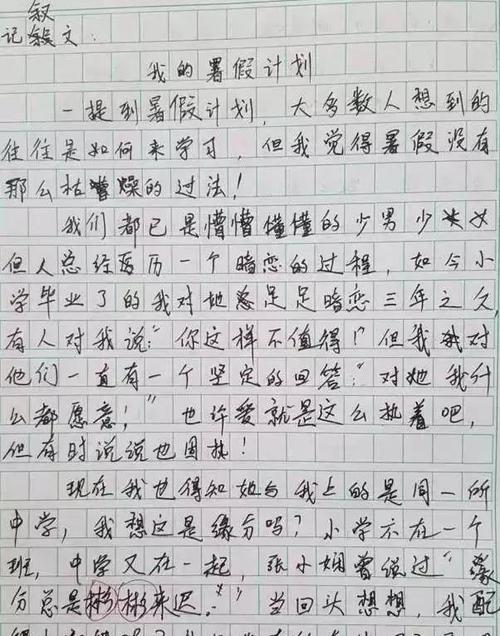 叙
记叙文:
我的暑假计划
一提到暑假计划，大多数人想到的
往往是如何来学习，但我觉得暑假没有
那么枯燥的过法！
我们都已是懵懵懂懂的少男少女
但人总经历一个暗恋的过程，如今小
学毕业了的我对她足足暗恋三年之久，
有人对我说：“你这样不值得！”但我对
他们一直有一个坚定的回答：“对她我什
么都愿意！”也许爱就是这么执着吧，
但有时说说也固执！
现在我也得知她与我上的是同一所
中学，我想这是缘分吗？小学不在一个
班，中学又在一起，张小娴曾说过“缘
分总是彬彬来迟。”当回头想想，我配